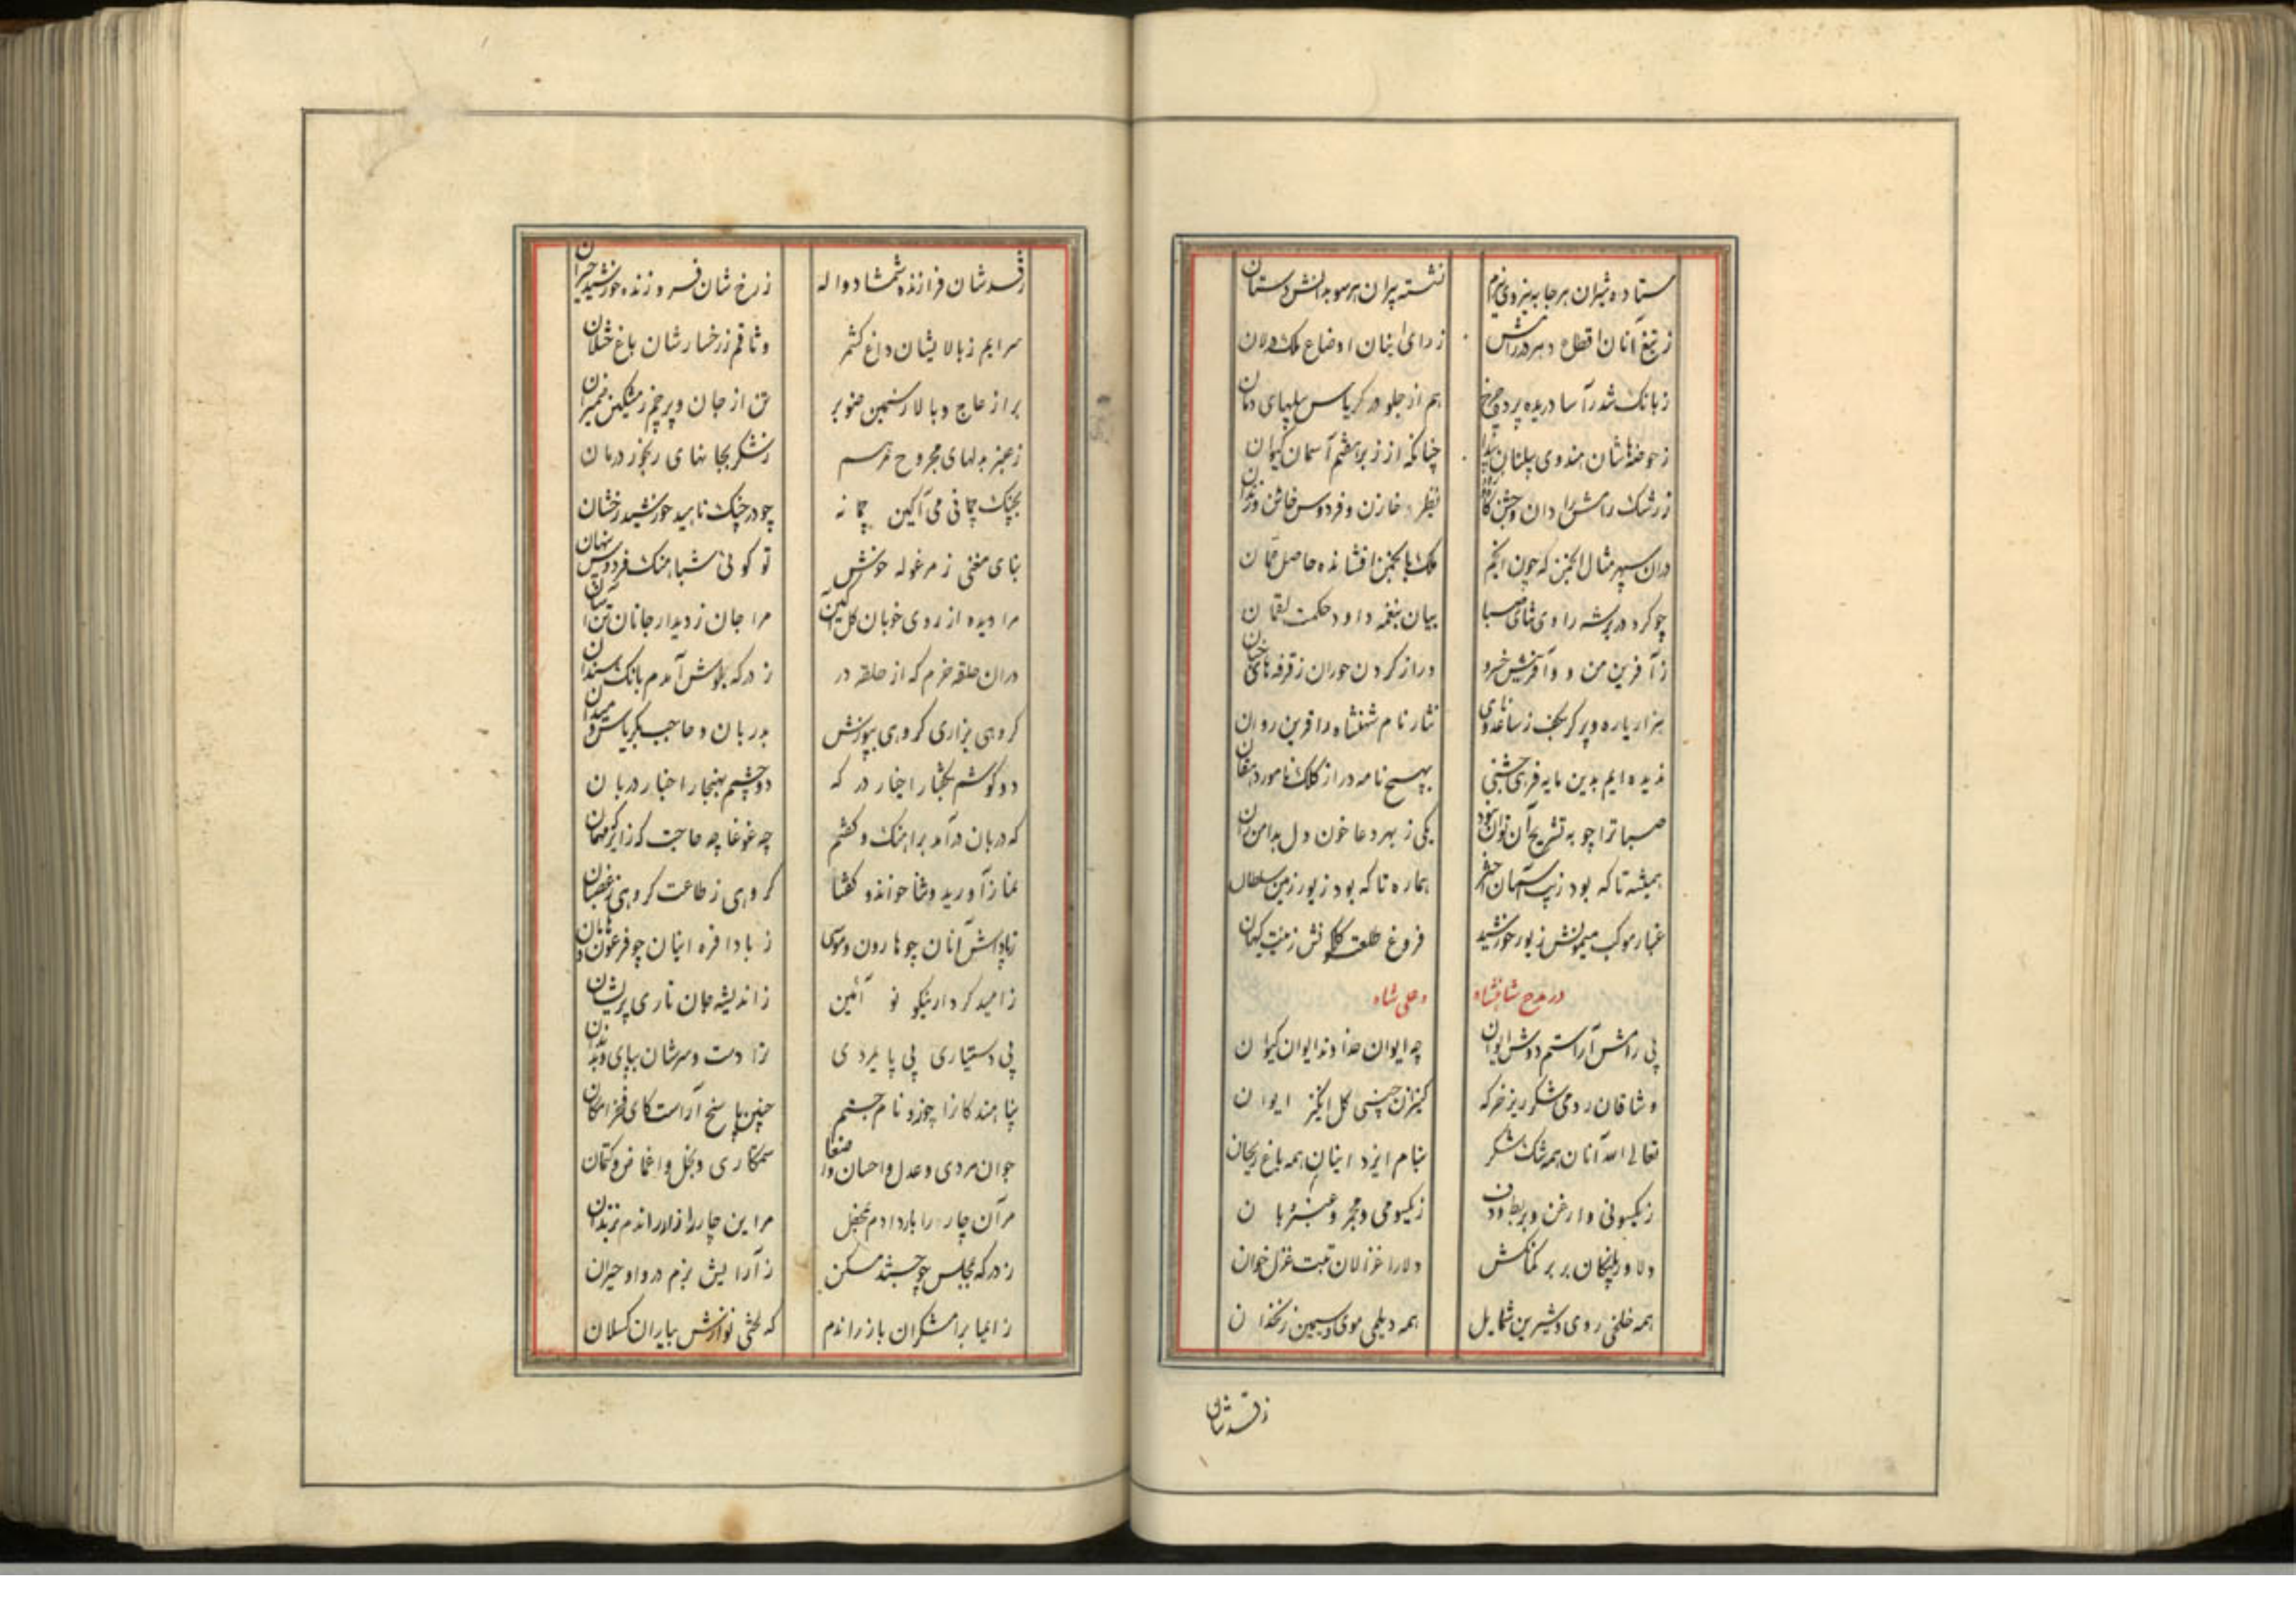 ستاده شیران هرجا به نیروی رزم نشسته پیران هرسو بدانش و دستان
ز تیغ آنان اقطاع دهر در رامش ز رای اینان اوضاع ملک
ز بانگ شدرآسا دریده پرده چرخ هم از جلو در کریاس پیلهای دمان
ز حوضهاشان هندوی پیلبانان چنانکه از زبر هفتم آسمان کیوان
ز رشک رامش رادان و جشن نظر خازن و فردوس
دران سپهر مثال انجمن که چون انجم ملک بانجمن افشانده حاصل عمان
چو کرد در پرسه راوی ثنای صبا بیان بنغمه داود حکمت لقمان
ز آفرین من و وآفرینش خسرو دراز کردن حوران ز غرفه های جنان
هزار یاره و پرگر بکف ز ساعد و نای نثار نام شهنشاه و آفرین روان
ندیده ایم بدین مایه فرهی جشنی بهیچ نامه در از کلک نامور دهقان
صبا ترا چو به تشریح آن توان نبود یکی ز بهر دعا خون دل بدامن ران
همیشه تا که بود زیب آسمان اختر هماره تا که بود زیور زمین سلطان
غبار موکب میمونش زیور خورشید فروغ طلعت گلگونش زینت کیهان
در مدح شاهنشاه و علی شاه
پی رامش آراستم دوش ایوان چه ایوان خداوند ایوان کیوان
وشاقان رومی شکرریز خرگه کنیزان چینی گل انگیز ایوان
تعالی الله آنان همه تنگ شکر بنام ایزد اینان همه باغ ریحان
ز یکسو نی و ارغن و بربط و دف ز یکسو می و مجمر و عنبر و بان
دلاور پلنگان بربر کمانکش دلارا غزالان تبت غزل خوان
همه خلخی روی و شیرین شمایل همه دیلمی موی و سیمین زنخدان
ز قدشان
ز قدشان فرازنده شمشاد و لاله ز رخشان فروزنده خورشید حیران
سرایم ز بالایشان داغ کشمر وثاقم ز رخسارشان باغ ختلان
بر از عاج و بالا ز سیمین صنوبر تن از جان و پرچم ز مشکین ضمیران
ز عنبر بدلهای مجروح مرهم ز شکر بجانهای رنجور درمان
بچنگ چمانی می آگین چمانه چو در چنگ ناهید خورشید رخشان
بنای مغنی ز مرغوله خوش تو گوئی شباهنگ فردوس پنهان
مرا دیده از روی خوبان گل آگین مرا جان ز دیدار جانان تن آسان
دران حلقه خرم که از حلقه در ز درگه بگوش آمدم بانگ سندان
گروهی بزاری گروهی بپوزش بدربان و حاجب بکریاس و میدان
دو گوشم بگفتار اخبار درگه دو چشم بهنجار احضار دربان
که دربان درآمد براهنگ و گفتم چه غوغا چه حاجت که زایر که مهمان
نماز آورید و ثنا خواند و گفتا گروهی ز طاعت گروهی ز عصیان
ز پاداش آنان چو هارون و موسی ز بادافره اینان چو فرعون و هامان
ز امید کردار نیکو نوآئین ز اندیشه جان تاری پریشان
پی دستیاری پی پایمردی ز دست و سرشان بپای و بدندان
پناهندگانرا چو زو نام جستم چنین پاسخ آراست کای فخر امکان
جوان مردی و عدل و احسان و انصاف ستمکاری و بخل و اغماض و کتمان
مر آن چار را بار دادم بمحفل مر این چار را از در راندم بزندان
ز درگه بمجلس چو جستند مسکن ز آرایش بزم در وا و حیران
ز اعیا برامشگران باز راندم که لختی نوازش بیاران کسلان